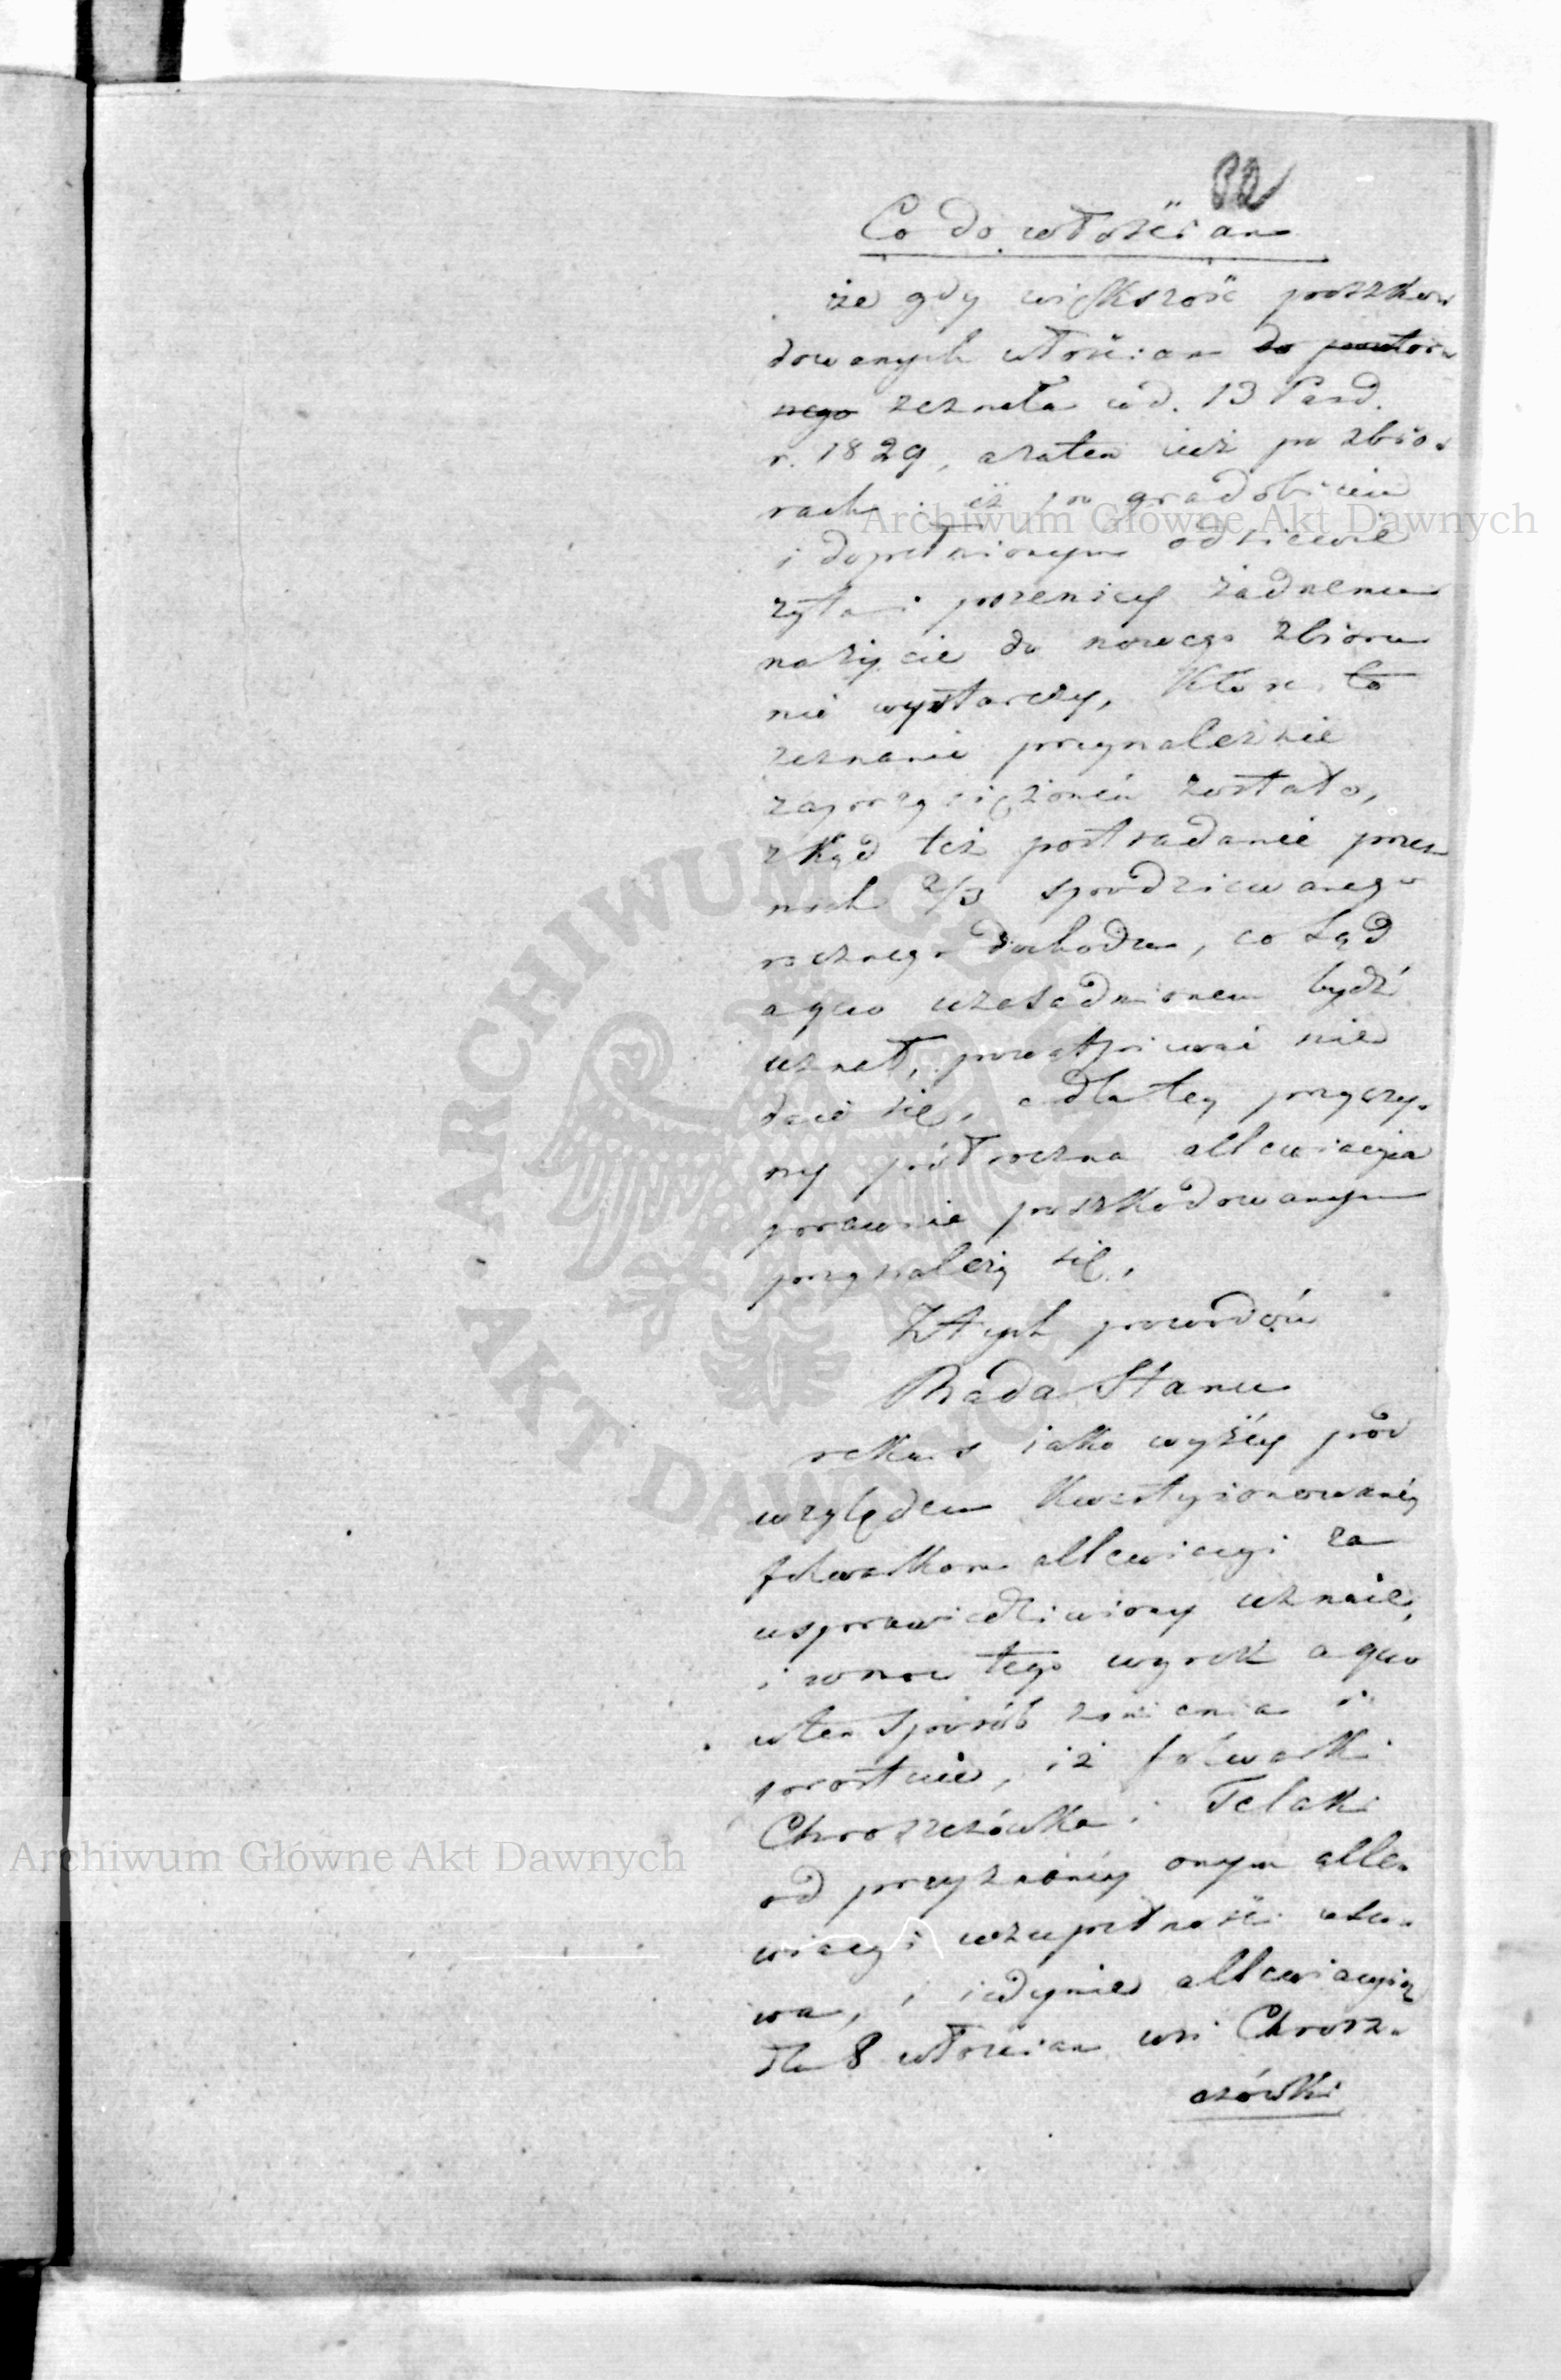 82
Co do włościan
że gdy większość poszko-
dowanych włościan do powtor-
nego zeznała w d. 13 Paźd.
r. 1829, a zatem iuż po zbio-
rach iż po gradobiciu
i dopełnionym odsiewie
żyta i pszenicy żadnemu
na życie do nowego zbioru
nie wystarczy, które to
zeznanie przynależnie
zaprzysiężonem zostało,
zkąd też postradanie przez
nich 2/3 spodziewanego
rocznego dochodu, co Sąd
a quo uzasadnionem bydź
uznał, powątpiwać nie
daie się, a dla tey przyczy-
ny półroczna allewiacyia
prawnie poszkodowanym
przynależy się,
Z tych powodów
Rada Stanu
rekurs iako wyżéy pod
względem kwestyionowanéy
folwarkom allewiacyi za
usprawiedliwiony uznaie,
i w moc tego wyrok a quo
w ten sposób zmienia i
prostuie, iż folwarki
Chroszczówka i Telaki
od przyznanéy onym alle-
wiacyi w zupełności usu-
wa, i iedynie allewiacyią
dla 8 włościan wsi Chrosz-
czówki
Archiwum Główne Akt Dawnych
Archiwum Główne Akt Dawnych
ARCHIWUM GŁÓWNE AKT DAWNYCH